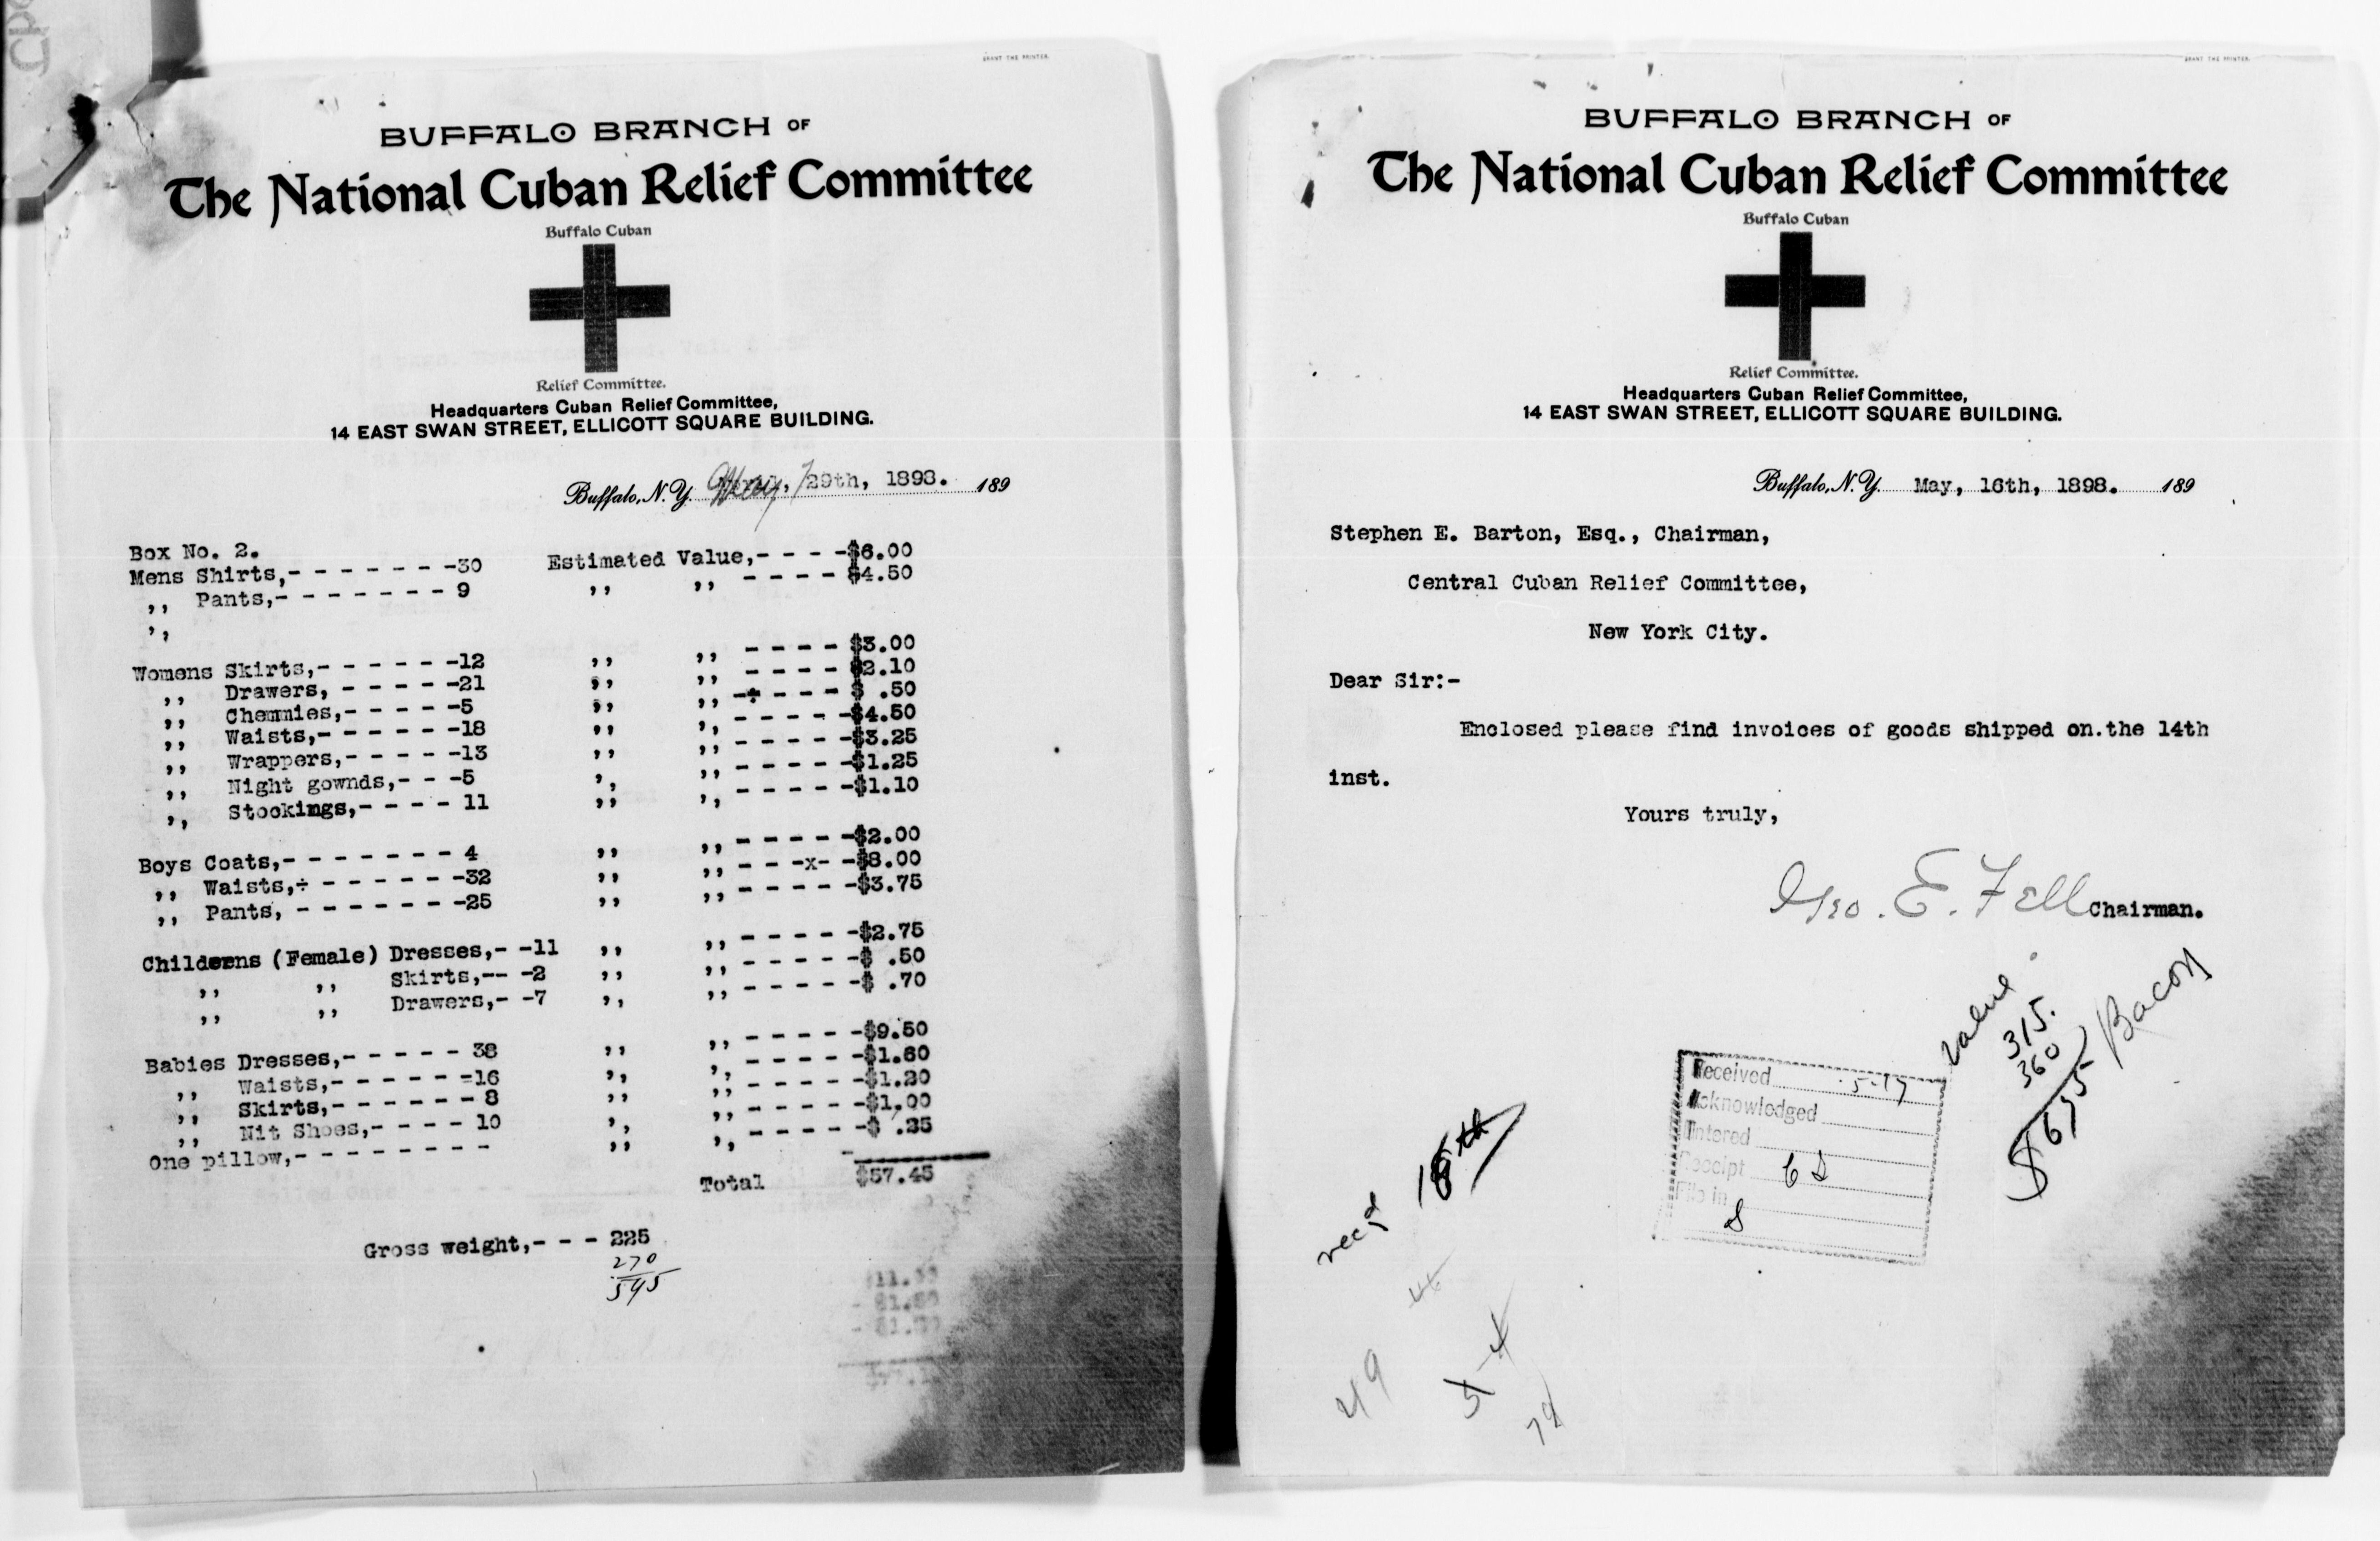 GRANT THE PRINTER.
BUFFALO BRANCH OF
The National Cuban Relief Committee
Buffalo Cuban
Relief Committee.
Headquarters Cuban Relief Committee,
14 EAST SWAN STREET, ELLICOTT SQUARE BUILDING.
Buffalo, N. Y. 29th, 1898. 189
Box No. 2.
Mens Shirts,- - - - - - - -30 Estimated Value,- - - -$6.00
,, Pants,- - - - - - - - 9 ,, ,, - - - - $4.50
,,
Womens Skirts,- - - - - - -12 ,, ,, - - - - $3.00
,, Drawers, - - - - -21 ,, ,, - - - - $2.10
,, Chemmies,- - - - - -5 ,, ,, - - - - $ .50
,, Waists,- - - - - - -18 ,, ,, - - - - -$4.50
,, Wrappers,- - - - - -13 ,, ,, - - - - -$3.25
,, Night gownds,- - -5 ,, ,, - - - - -$1.25
,, Stockings,- - - - 11 ,, ,, - - - - -$1.10
Boys Coats,- - - - - - - - 4 ,, ,, - - - - -$2.00
,, Waists,÷ - - - - - -32 ,, ,, - - -x- -$8.00
,, Pants, - - - - - - -25 ,, ,, - - - - -$3.75
Childerns (Female) Dresses,- -11 ,, ,, - - - - -$2.75
,, ,, Skirts,-- -2 ,, ,, - - - - -$ .50
,, ,, Drawers,- -7 ,, ,, - - - - -$ .70
Babies Dresses,- - - - - - 38 ,, ,, - - - - -$9.50
,, Waists,- - - - - - -16 ,, ,, - - - - -$1.60
,, Skirts,- - - - - - - 8 ,, ,, - - - - -$1.20
,, Nit Shoes,- - - - 10 ,, ,, - - - - -$1.00
One pillow,- - - - - - - - - ,, ,, - - - - -$ .25
Total $57.45
Gross weight,- - - 225
270
545
GRANT THE PRINTER.
BUFFALO BRANCH OF
The National Cuban Relief Committee
Buffalo Cuban
Relief Committee.
Headquarters Cuban Relief Committee,
14 EAST SWAN STREET, ELLICOTT SQUARE BUILDING.
Buffalo, N. Y. May, 16th, 1898. 189
Stephen E. Barton, Esq., Chairman,
Central Cuban Relief Committee,
New York City.
Dear Sir:-
Enclosed please find invoices of goods shipped on.the 14th
inst.
Yours truly,
Geo. E. Fell Chairman.
Value
315.
360
$675 Bacon
Received 5-17
Acknowledged
Entered
Receipt
File in
recd 18th
49